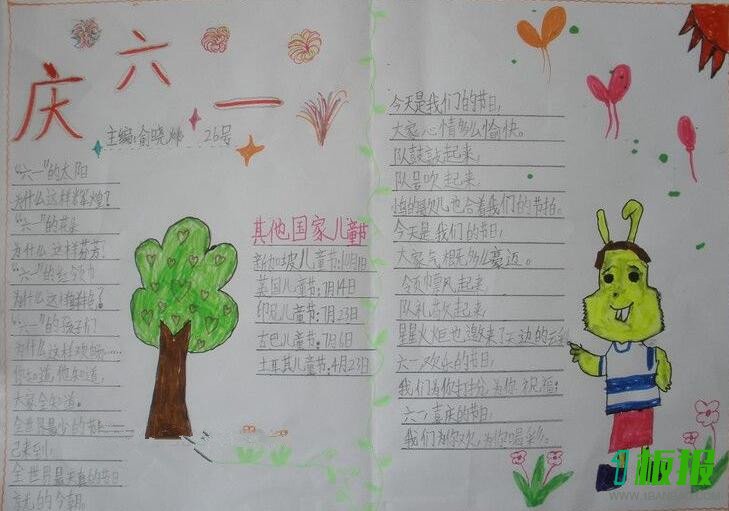 庆六一
主编:俞晓 26号
"六一"的太阳
为什么这样辉煌?
"六一"的花朵
为什么这样芬芳?
"六一"的红领巾
为什么这样
"六一"的孩子们
为什么这样欢畅……
你知道,他知道,
大家全知道。
全世界最小的节
已来到,
全世界最 的节日
的今朝。
其他国家儿童节
新加坡儿童节:10月1日
美国儿童节:7月14日
印尼儿童节:7月23日
古巴儿童节:7月6日
土耳其儿童节:4月23日
今天是我们的节日,
大家心情多么愉快。
队鼓敲起来,
队号吹起来,
也合着我们的节拍。
今天是我们的节日,
大家气 多么豪迈。
令巾飘起来,
队礼 起来,
星星火炬也邀来了天边的云彩
六一欢乐的节日,
我们为你打扮,为你祝福;
六一喜庆的节日,
我们为你欢,为你喝彩。
板报
WWW.1BANBAO.COM